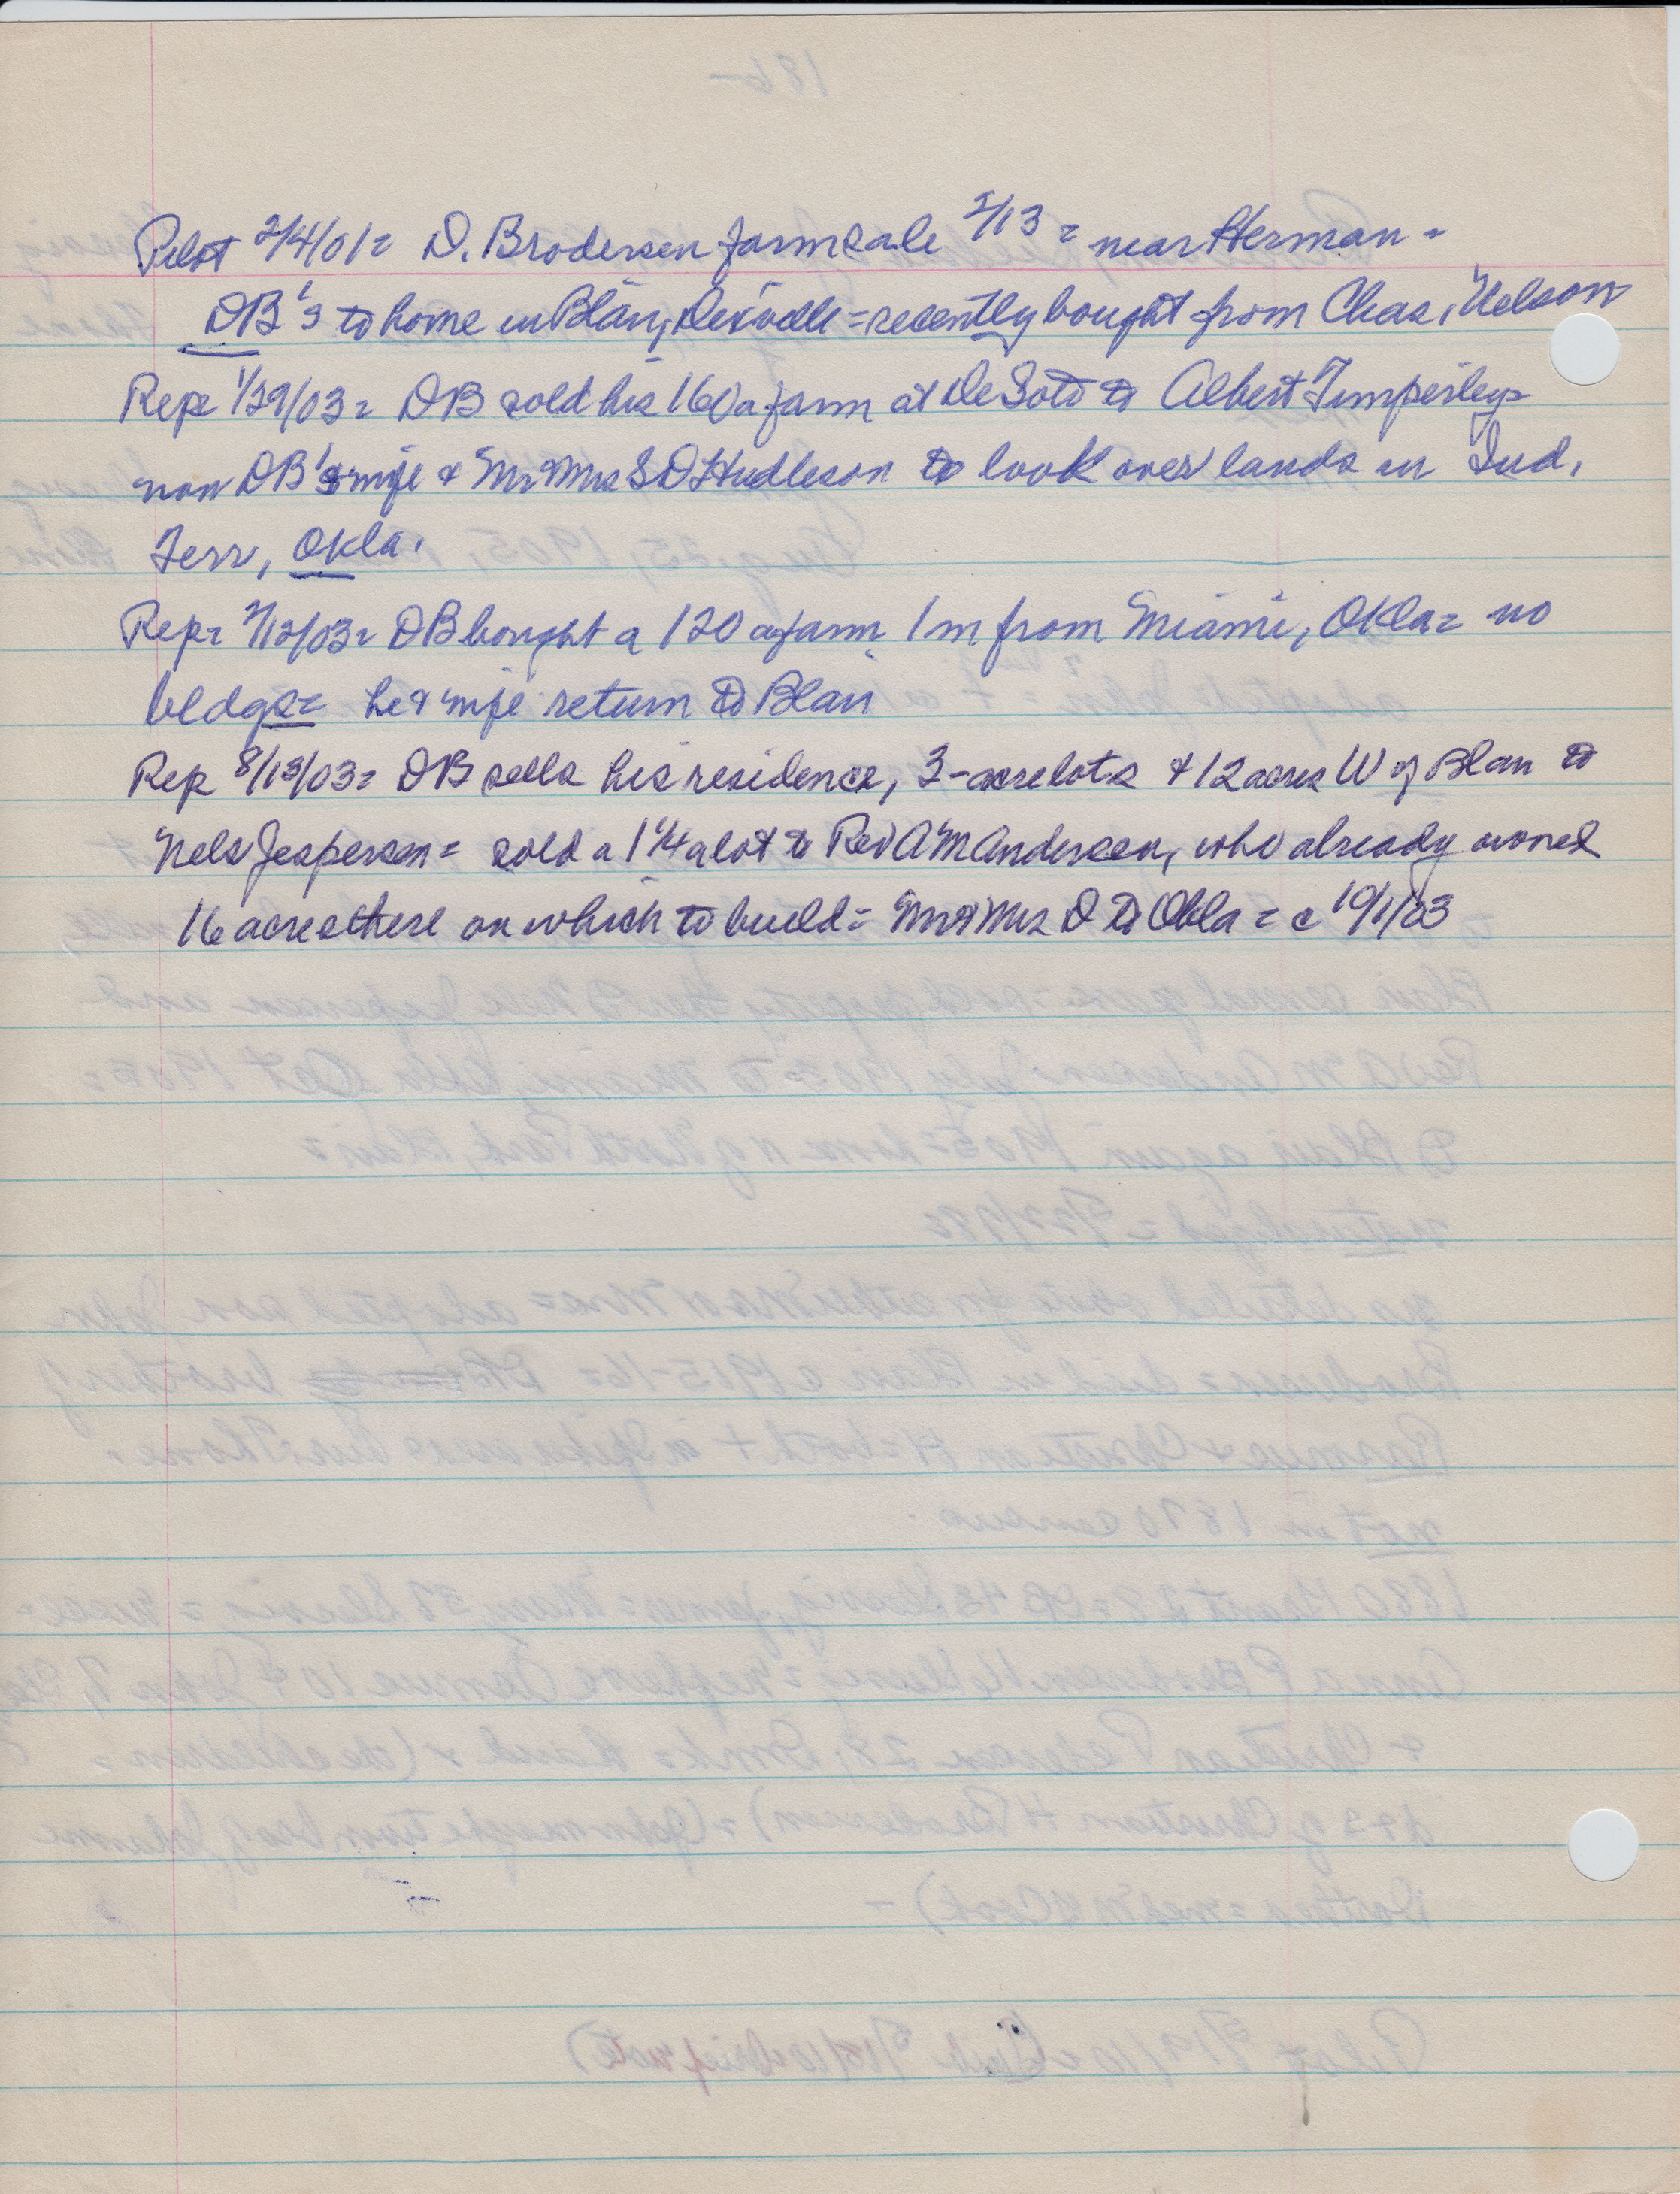 Pilot 2/4/01 = D. Brodersen farm sale 2/13 = near Herman =
DB's to home in Blair, = recently bought from Chas. Nelson
Rep 1/29/03 = DB sold his 160 a farm at DeSoto to Albert Timperley =
now DB & wife & Mr & Mrs S D Hudleson to look over lands in Ind.
Terr, Okla.
Rep = 2/12/03 = DB bought a 120 a farm 1 m from Miami, Okla = no
bldgs = he & wife return to Blair
Rep 8/13/03 = DB sells his residence, 3-acre lots & 12 acres W of Blair to
Nels Jespersen = sold a 1 1/4 a lot to Rev A M Andersen, who already owned
16 acres there on which to build = Mr & Mrs D to Okla = c 10/1/03